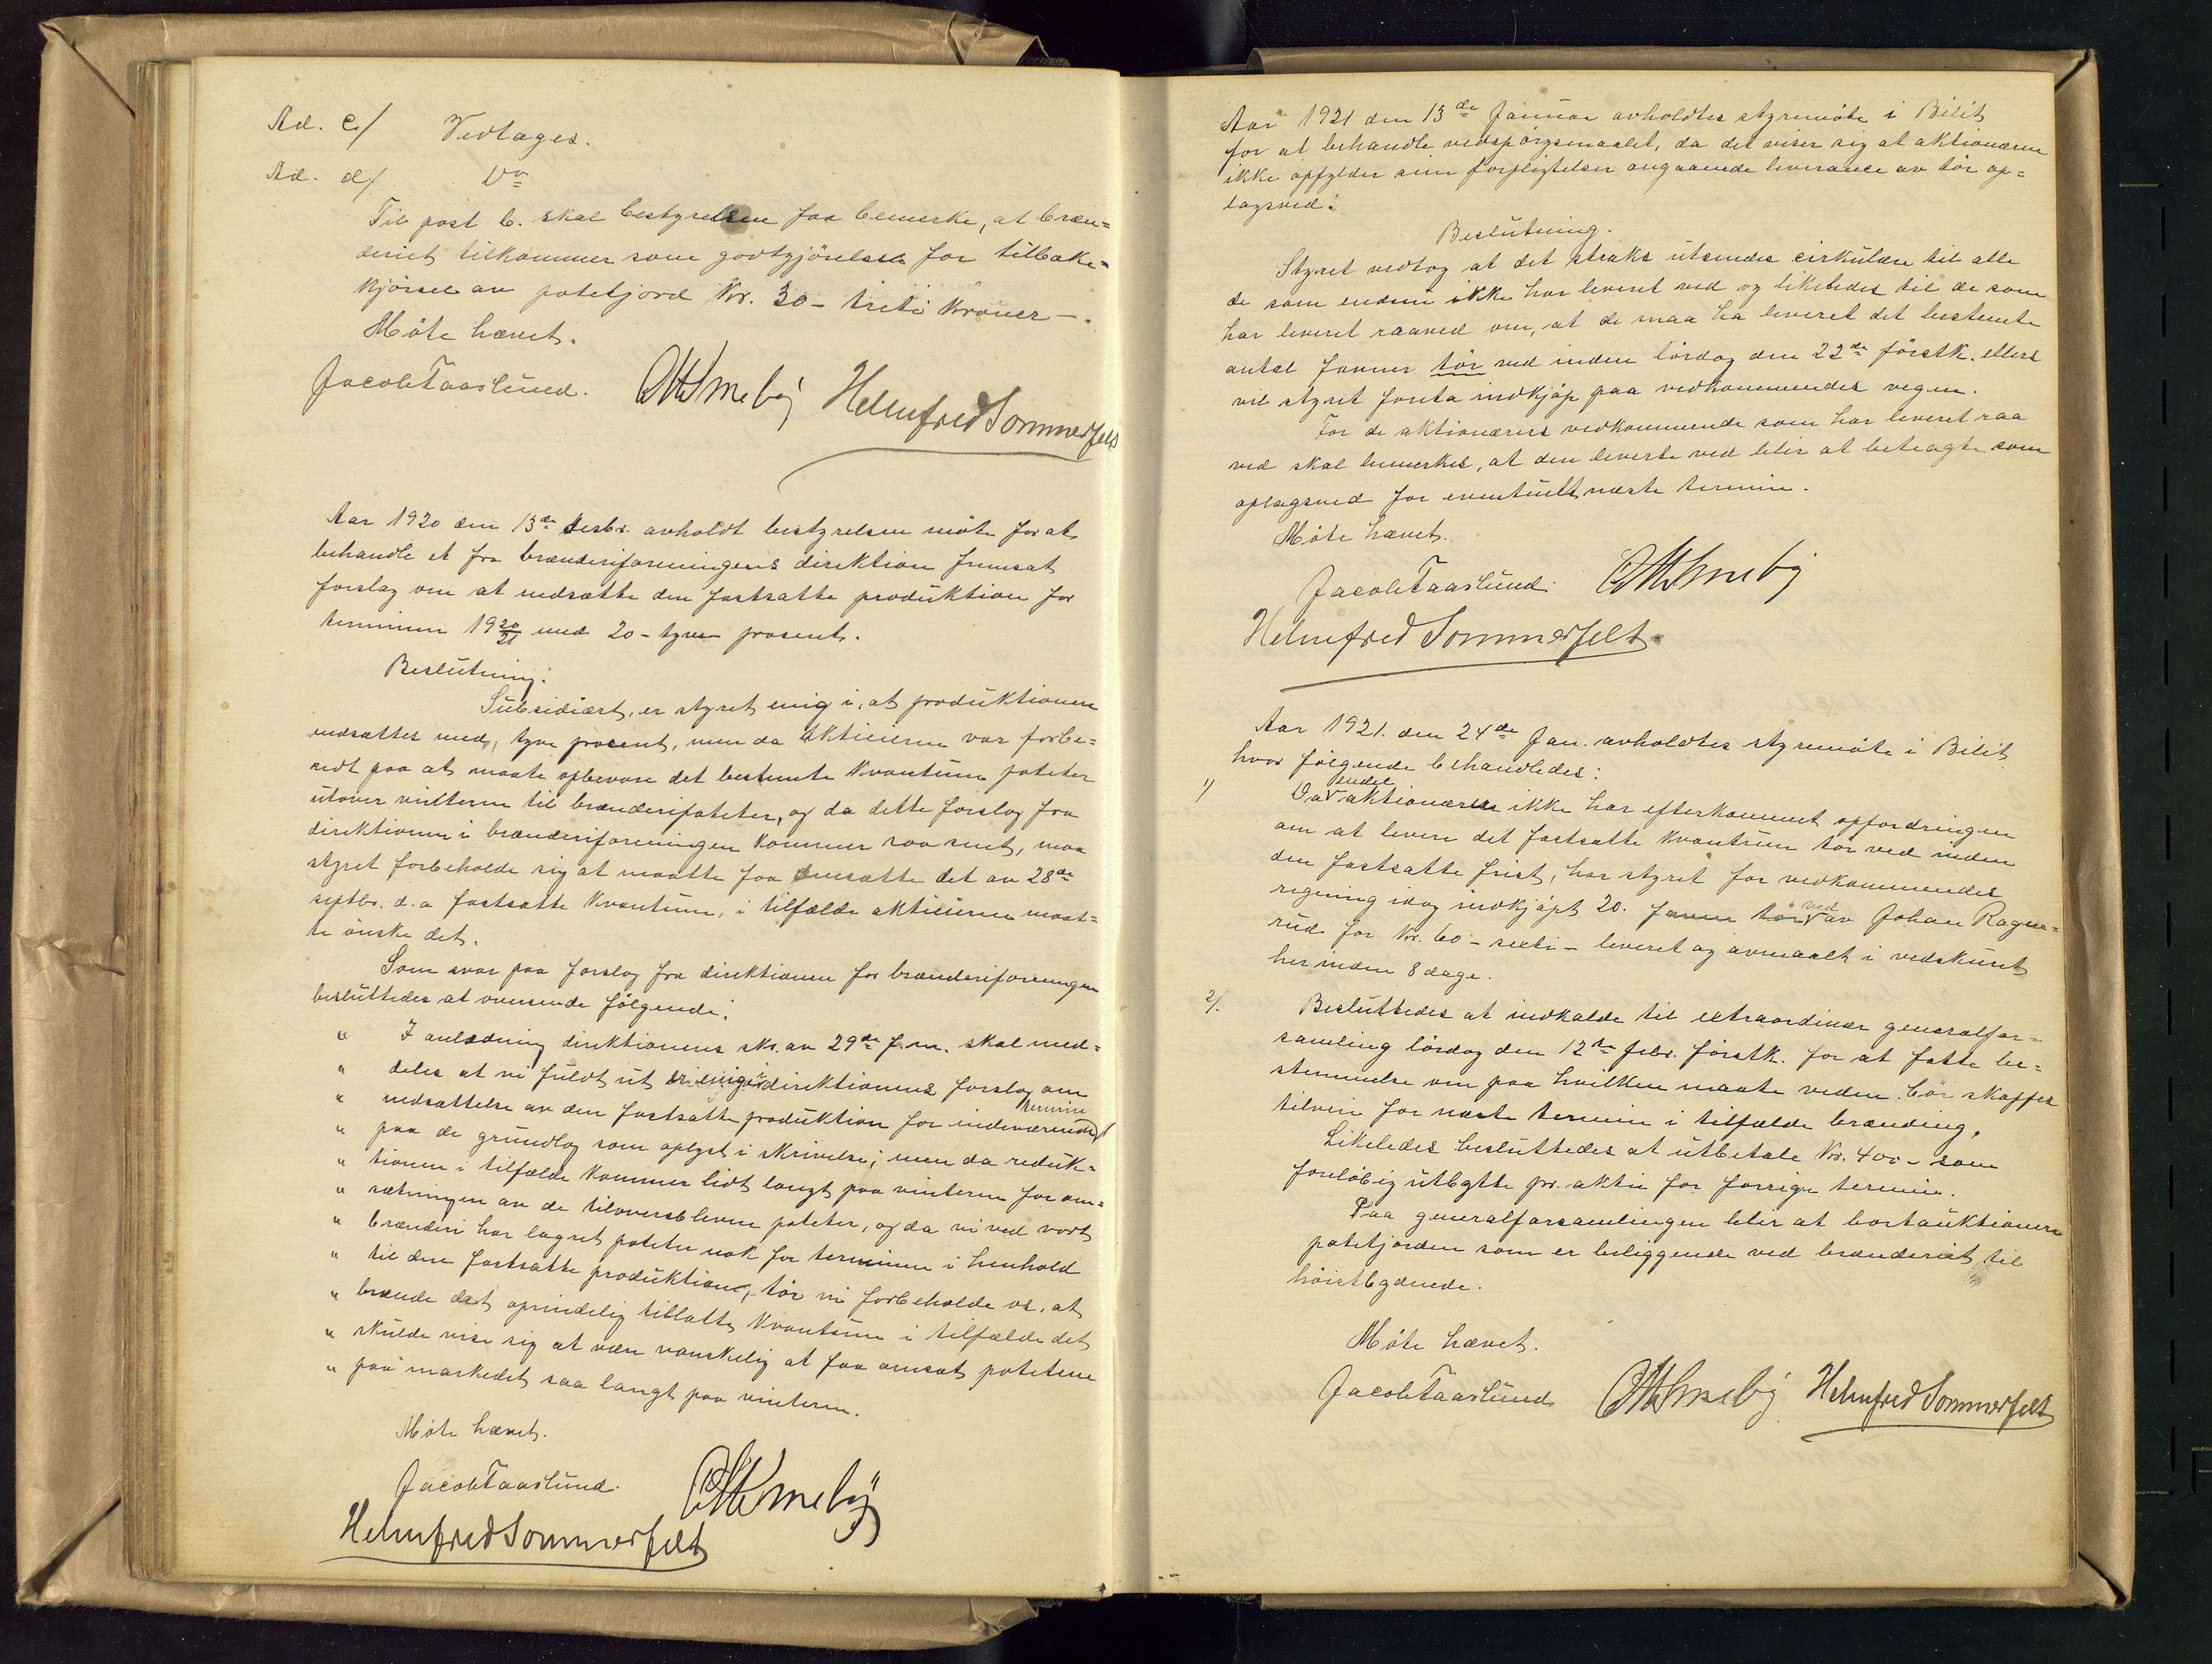 Ad. c/ Vedtages.
Ad. d/ Do
Til post b. skal bestyrelsen faa bemerke, at bræn=
deriet tilkommer som godtgjörelse for tilbake=
kjörsel av potetjord Kr. 30 - treti kroner -.
Möte hævet.
Jacob Taaslund. Helmfred Sommerfelt
Aar 1920 den 13de desbr. avholdt bestyrelsen möte for at
behandle et fra brænderiforeningens direktion fremsat
forslag om at nedsætte den fastsatte produktion for
terminen 1920/21 med 20 - tyve prosent.
Beslutning:
Subsidiært, er styret enig i, at produktionen
nedsættes med, tyve procent, men da aktieierne var forbe=
redt paa at maate opbevare det bestemte kvantum poteter
utover vinteren til brænderipoteter, og da dette forslag fra
direktionen i brænderiforeningen kommer saa sent, maa
styret forbeholde sig at maatte faa omsætte det av 28de
septbr. d.a fastsatte kvantum, i tilfælde aktieierne maat=
te önske det.
Som svar paa forslag fra direktionen for brænderiforeningen
besluttedes at oversende fölgende:
" I anledning direktionens skr. av 29de f.m. skal med=
" deles at vi fuldt ut er enig i direktionens forslag om
" nedsættelse av den fastsatte produktion for indeværende termin
" paa de grundlag som oplyst i skrivelse; men da reduk=
" tionen i tilfælde kommer lidt langt paa vinteren for om=
" sætningen av de tiloversblevne poteter, og da vi ved vort
" brænderi har lagret poteter nok for terminen i henhold
" til den fastsatte produktion, tör vi forbeholde os, at
" brænde det oprindelig tillatte kvantum i tilfælde det
" skulde vise sig at være vanskelig at faa omsat potetene
" paa markedet saa langt paa vinteren.
Möte hævet.
Jacob Taaslund.
Helmfred Sommerfelt
Aar 1921 den 13de Januar avholdtes styremöte i Bilit
for at behandle vedspörgsmaalet, da det viser sig at aktionærene
ikke opfylder sine forpligtelser angaaende leverance av tör op=
lagsved.
Beslutning.
Styret vedtog at det straks utsendes cirkulære til alle
de som endnu ikke har leveret ved og likeledes til de som
har leveret raaved om, at de maa ha leveret det bestemte
antal favner tör ved inden lördag den 22de förstk. ellers
vil styret foreta indkjöp paa vedkommendes vegne.
For de aktionærers vedkommende som har leveret raa
ved skal bemerkes, at den leverte ved blir at betragte som
oplagsved for eventuelt næste termin.
Möte hævet.
Jacob Taaslund.
Helmfred Sommerfelt
Aar 1921. den 24de Jan. avholdtes styremöte i Bilit
hvor fölgende behandledes:
1) Da endel aktionærer ikke har efterkommet opfordringen
om at levere det fastsatte kvantum tör ved inden
den fastsatte frist, har styret for vedkommendes
regning idag indkjöpt 20. favne tör ved av Johan Ragne=
rud for Kr. 60 - sexti - leveret og avmaalt i vedskuret
her inden 8 dage.
2/. Besluttedes at indkalde til extraordinær generalfor=
samling lördag den 12te febr. förstk. for at fatte be=
stemmelse om paa hvilken maate veden bör skaffes
tilveie for næste termin i tilfælde brænding.
Likeledes besluttedes at utbetale Kr. 400 - som
forelöbig utbytte pr. aktie for forrige termin.
Paa generalforsamlingen blir at bortauktionere
potetjorden som er beliggende ved brænderiet til
höistbydende.
Möte hævet.
Jacob Taaslund Helmfred Sommerfelt